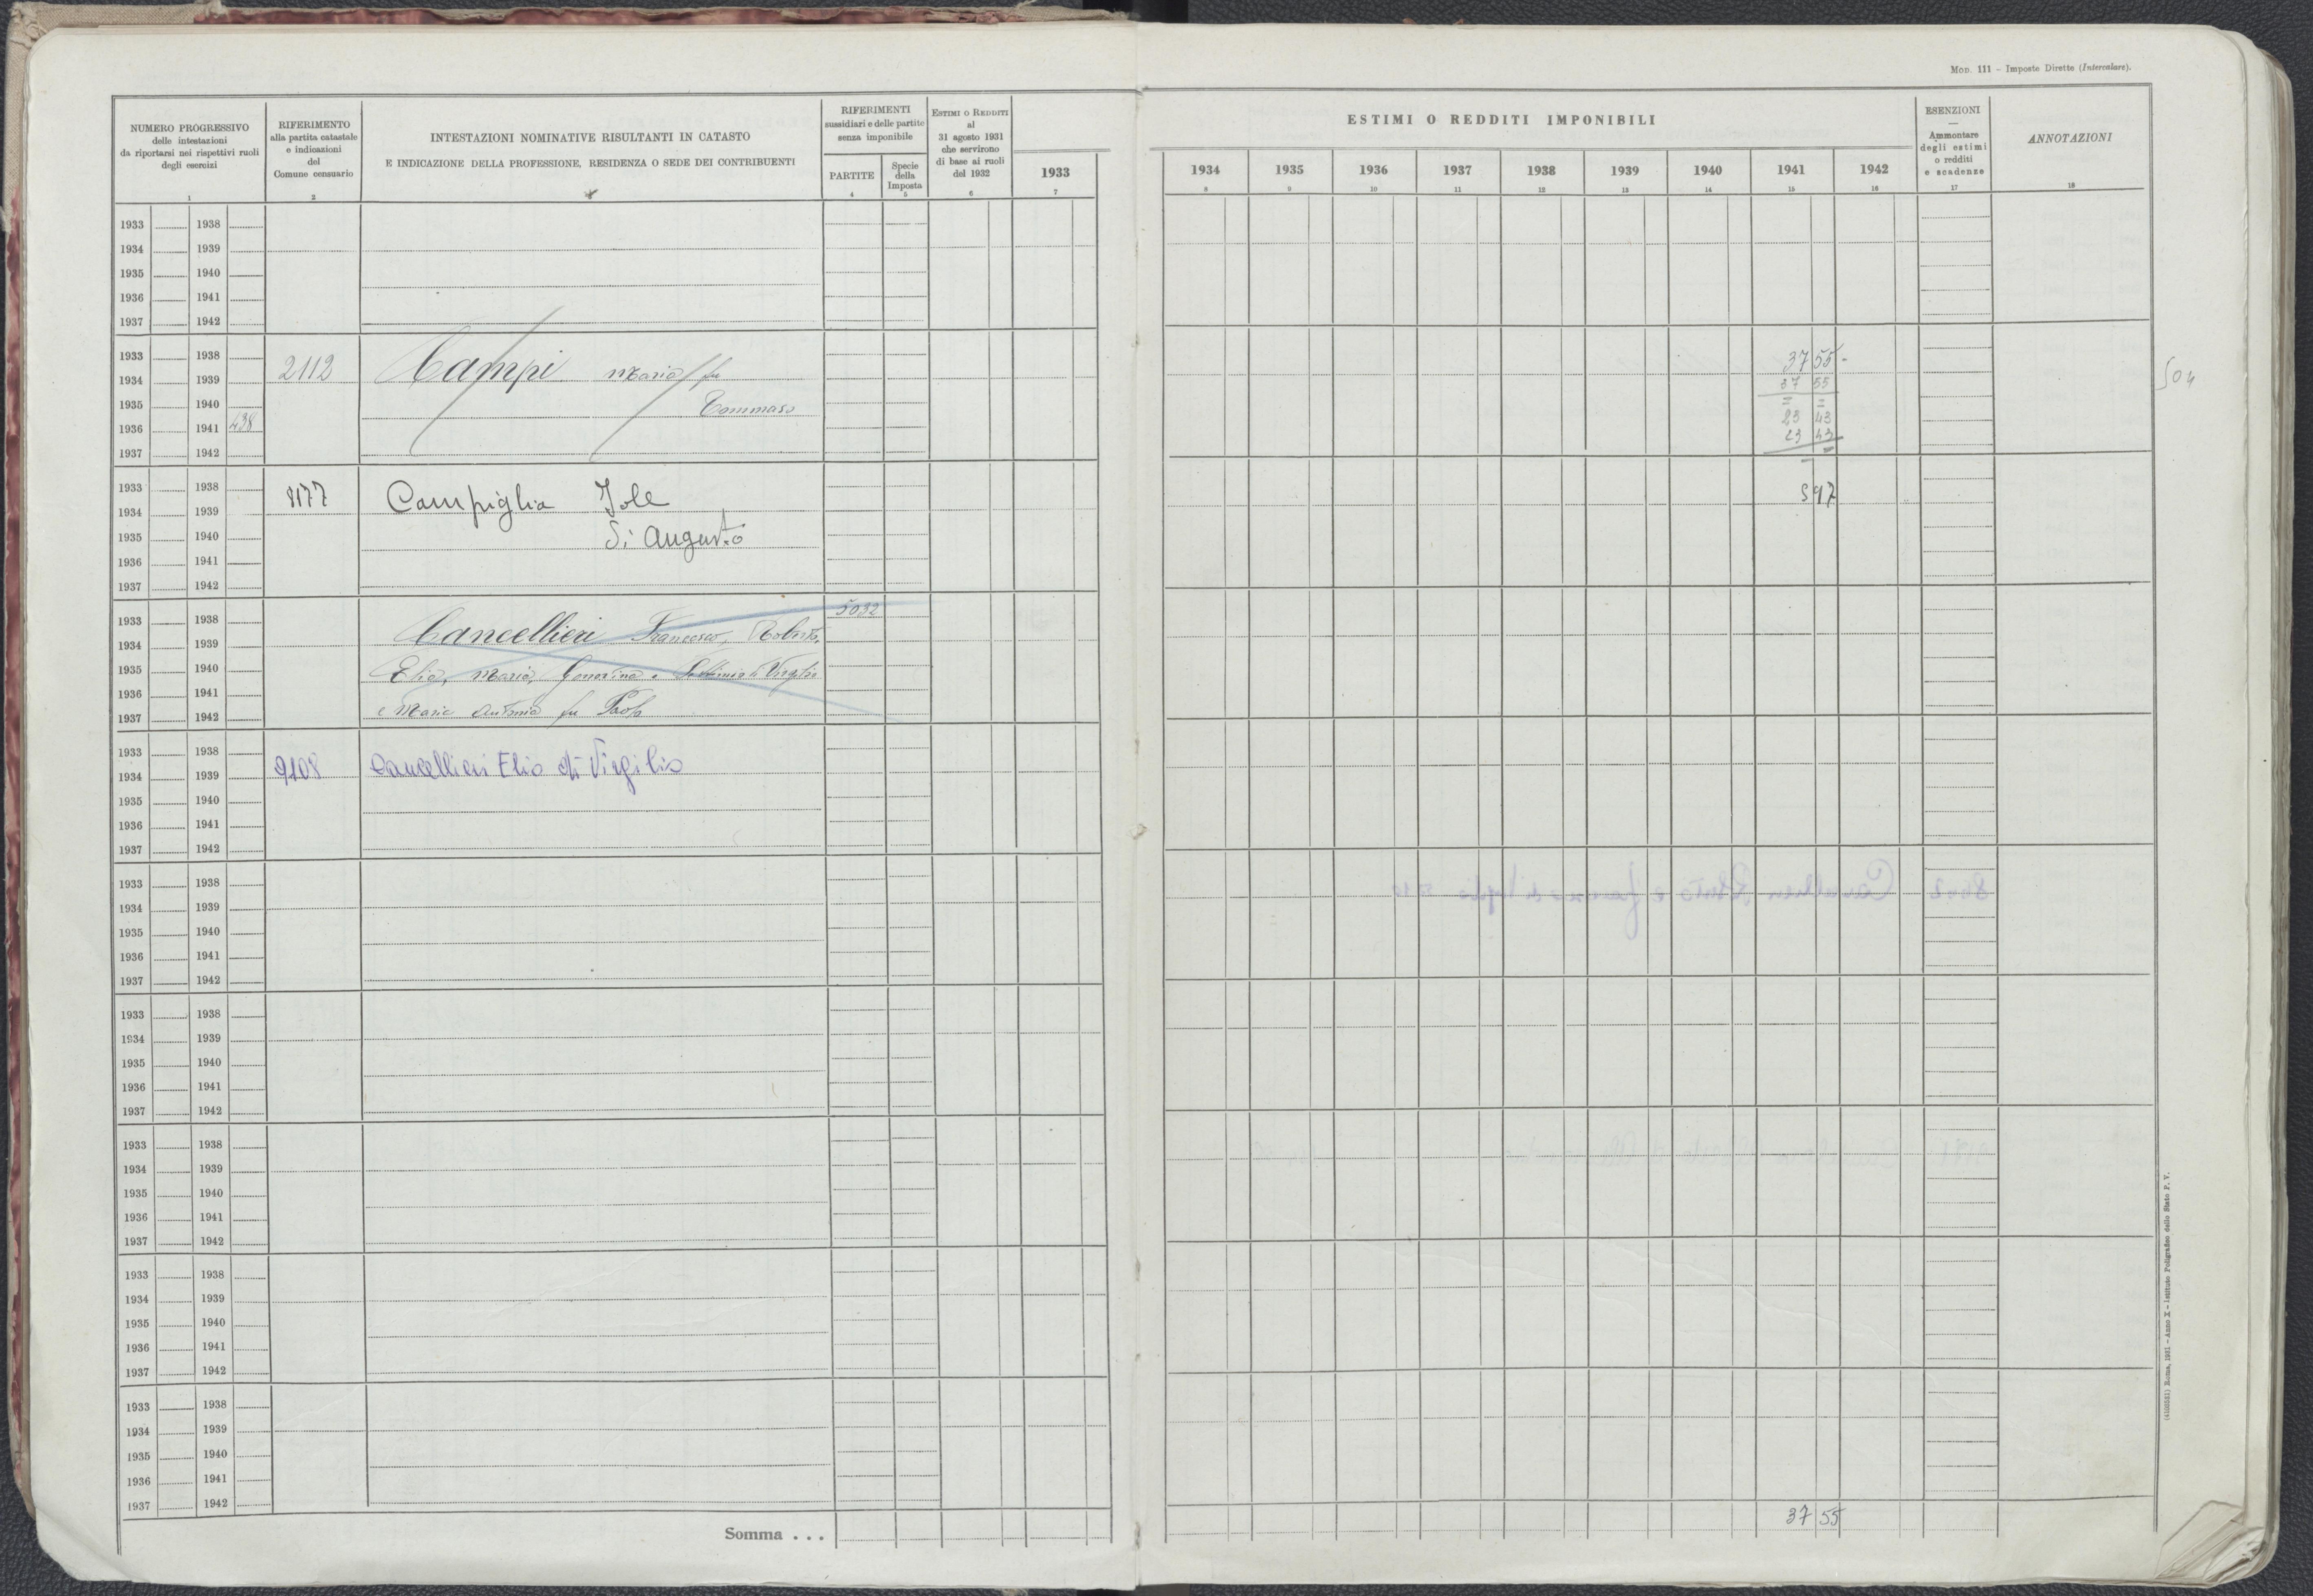 Mod. 111 – Imposte Dirette (Intercalare).
NUMERO PROGRESSIVO
delle intestazioni
da riportarsi nei rispettivi ruoli
degli esercizi
1
RIFERIMENTO
alla partita catastale
e indicazioni
del
Comune censuario
2
INTESTAZIONI NOMINATIVE RISULTANTI IN CATASTO
E INDICAZIONE DELLA PROFESSIONE, RESIDENZA O SEDE DEI CONTRIBUENTI
RIFERIMENTI
sussidiari e delle partite
senza imponibile
PARTITE
4
Specie
della
Imposta
5
ESTIMI O REDDITI
al
31 agosto 1931
che servirono
di base ai ruoli
del 1932
6
1933
7
ESTIMI O REDDITI IMPONIBILI
1934 1935 1936 1937 1938 1939 1940 1941 1942
8 9 10 11 12 13 14 15 16
ESENZIONI
—
Ammontare
degli estimi
o redditi
e scadenze
17
ANNOTAZIONI
18
1933 1938
1934 1939
1935 1940
1936 1941
1937 1942
1933 1938 37 55 -
1934 1939 2112 Campi Maria fu 37 55 504
1935 1940 Tommaso = =
1936 1941 438 23 43
1937 1942 23 43
1933 1938 8177 Campiglia Jole 5 97
1934 1939
1935 1940 di Augusto
1936 1941
1937 1942
1933 1938 5032
1934 1939 Cancellieri Francesco, Roberto,
1935 1940 Elio, Maria, di Virgilio
1936 1941
1937 1942 e Maria Antonia fu Paolo
1933 1938
1934 1939 9108 Cancellieri Elio di Virgilio
1935 1940
1936 1941
1937 1942
1933 1938
1934 1939
1935 1940
1936 1941
1937 1942
1933 1938
1934 1939
1935 1940
1936 1941
1937 1942
1933 1938
1934 1939
1935 1940
1936 1941
1937 1942
1933 1938
1934 1939
1935 1940
1936 1941
1937 1942
1933 1938
1934 1939
1935 1940
1936 1941
1937 1942
Somma . . . 37 55